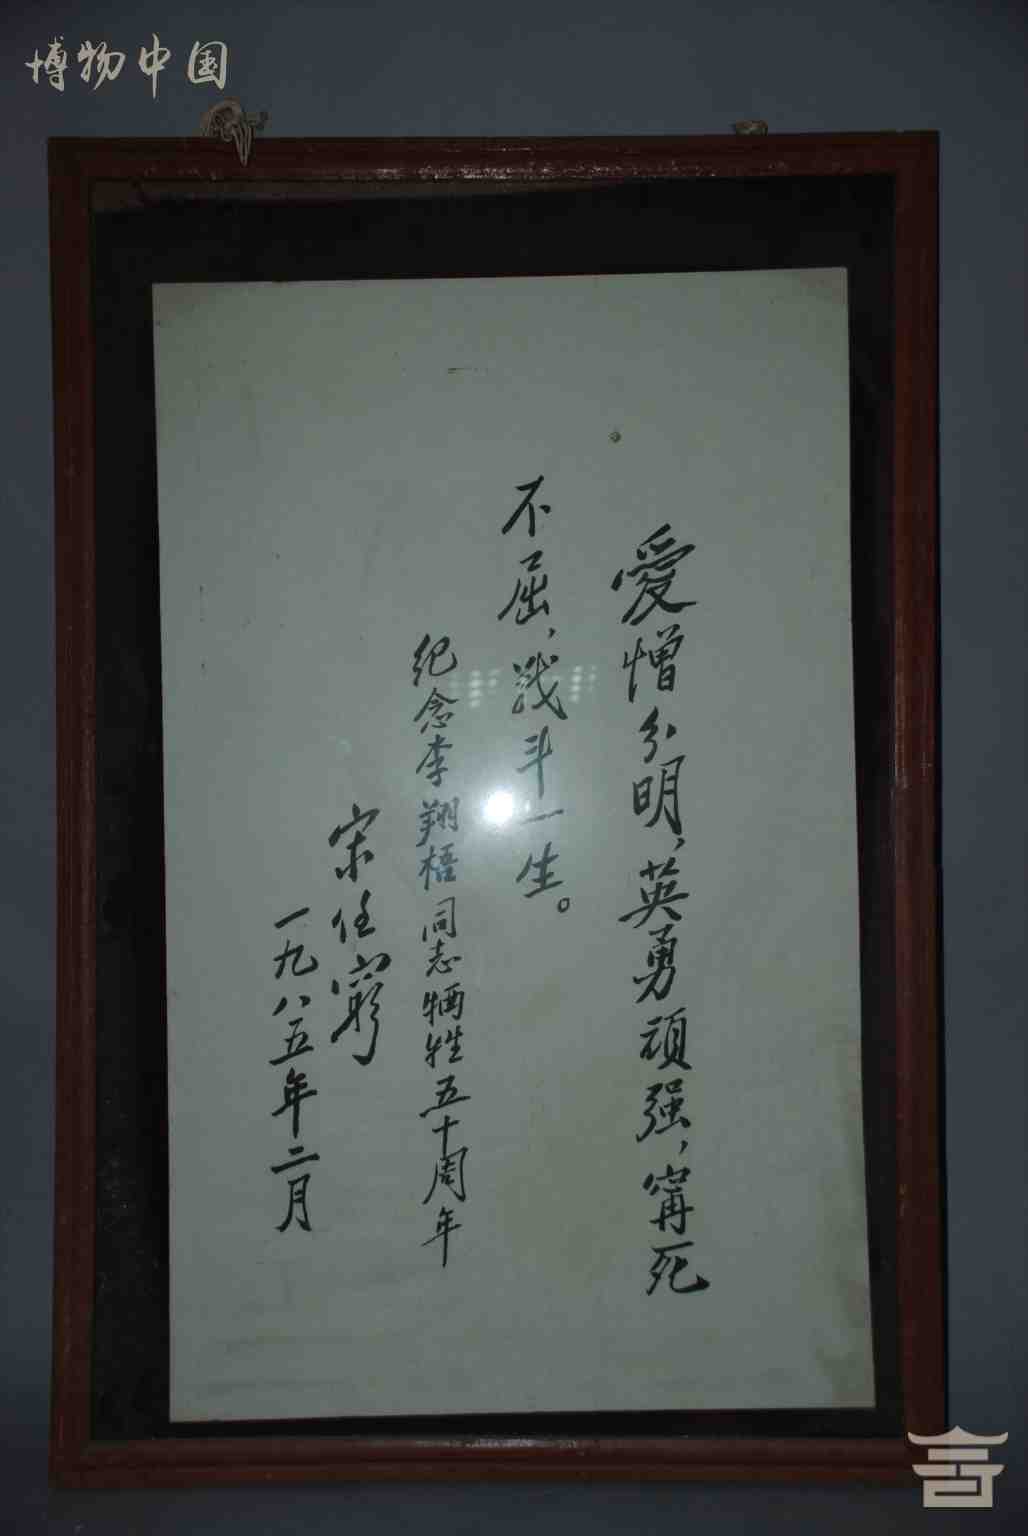 博物中国
愛憎分明，英勇頑强，寗死
不屈，战斗一生。
纪念李翔梧同志牺牲五十周年
宋任穷
一九八五年二月